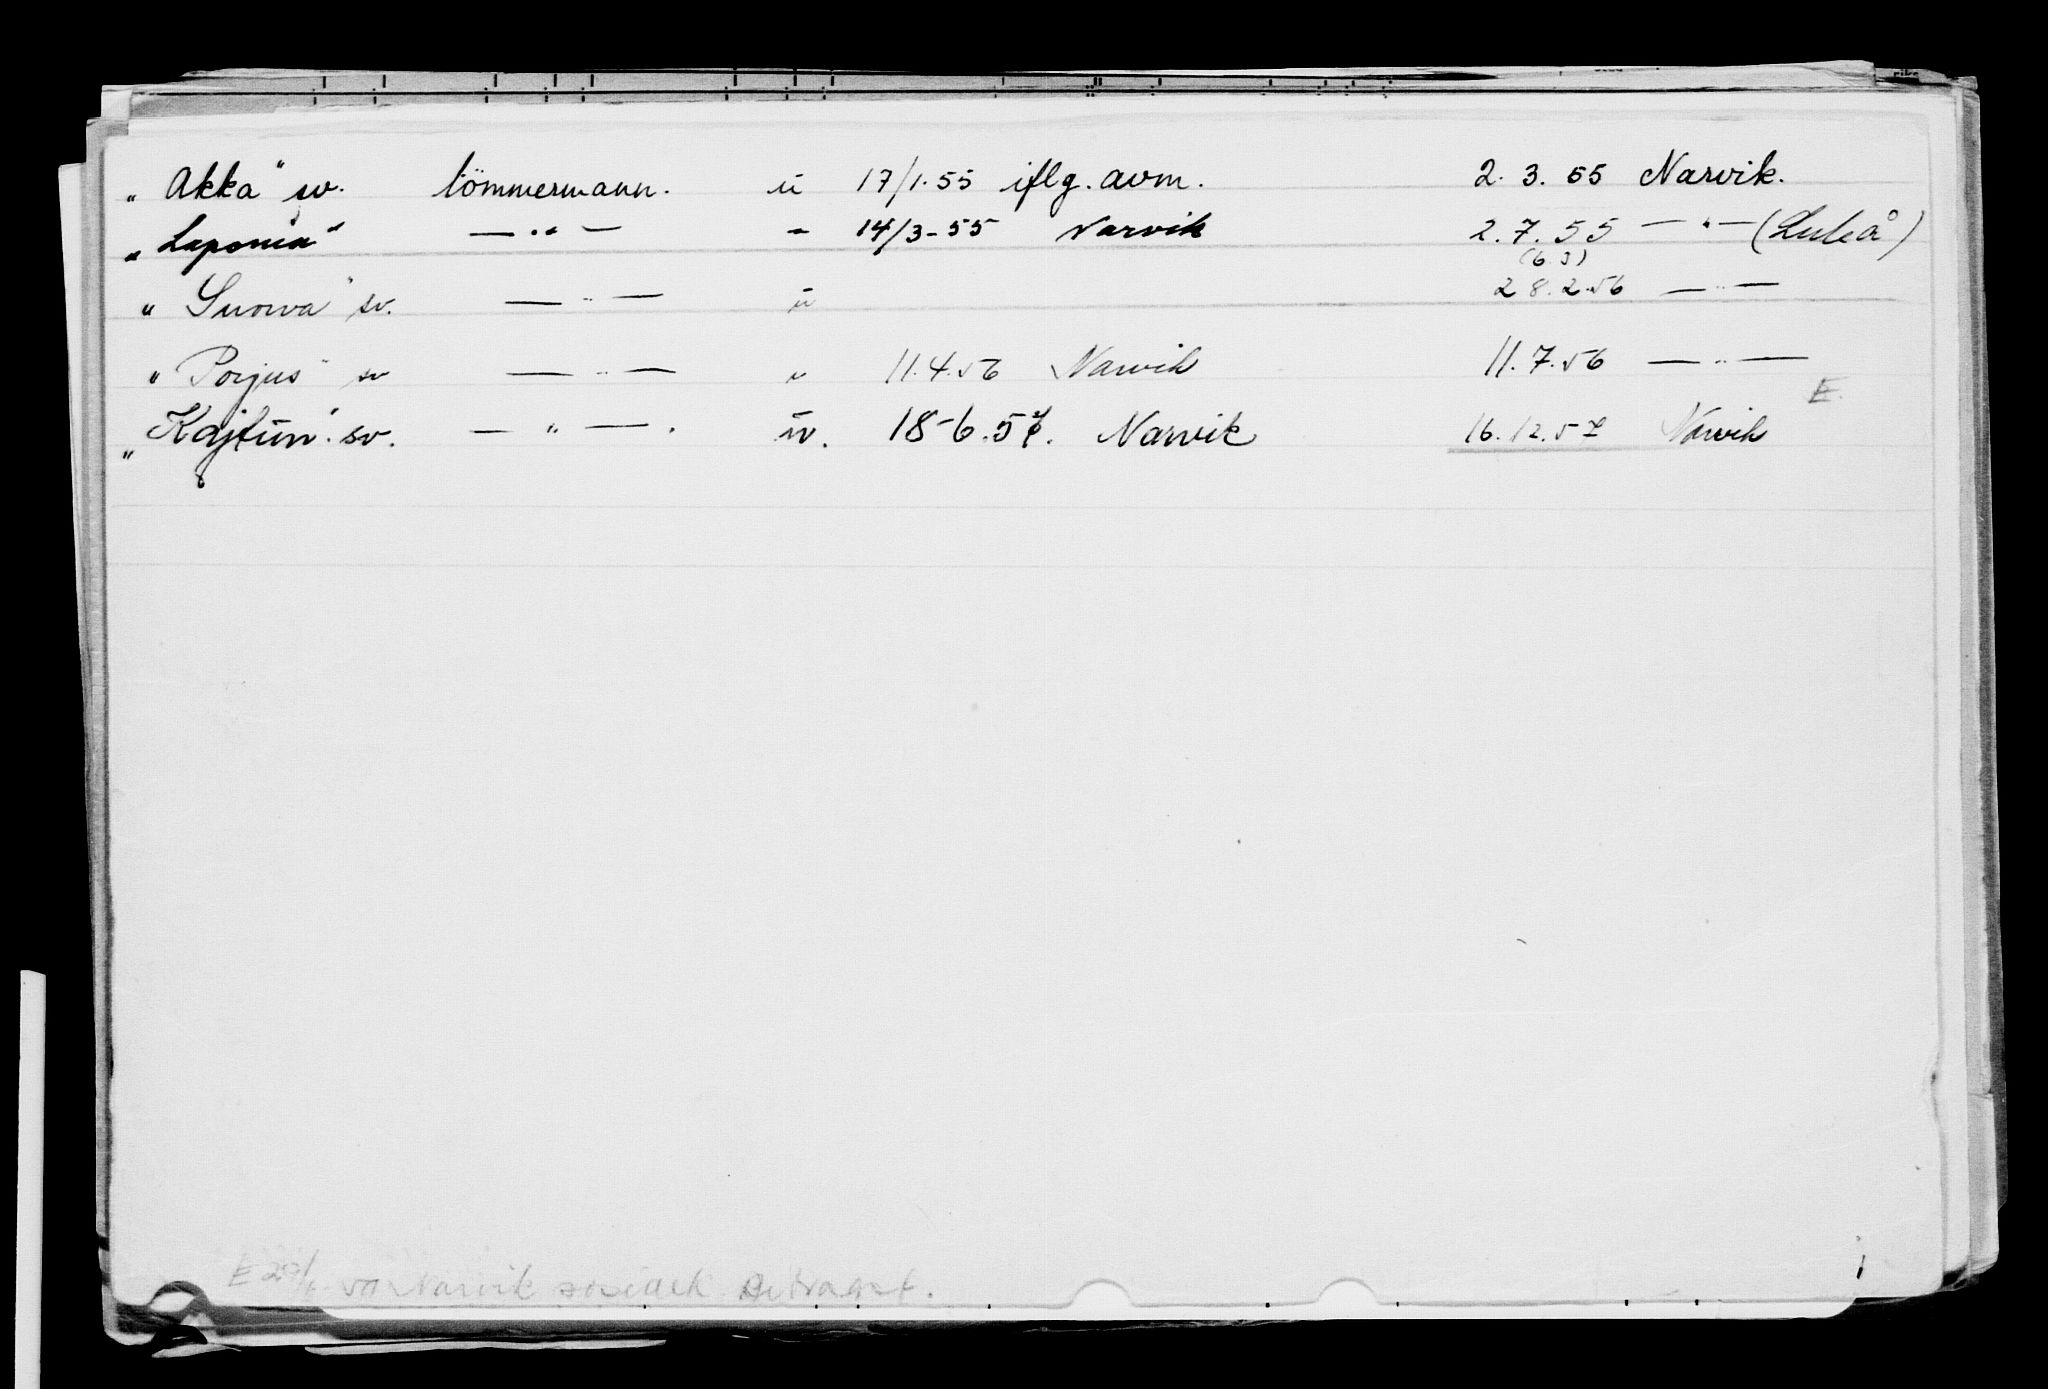 "Akka" sv. tömmermann. u 17/1.55 iflg. avm. 2. 3. 55 Narvik.
"Laponia" — " — - 14/3-55 Narvik 2. 7. 55 — " — (Luleå)
(6.3)
"Suorva" sv. — " — u 28.2.56 — " —
"Porjus" sv — " — u 11.4.56 Narvik 11.7.56 — " —
E.
"Kajtum" sv. — " — . uv. 18-6.57. Narvik 16.12.57 Narvik
E 20/ Narvik